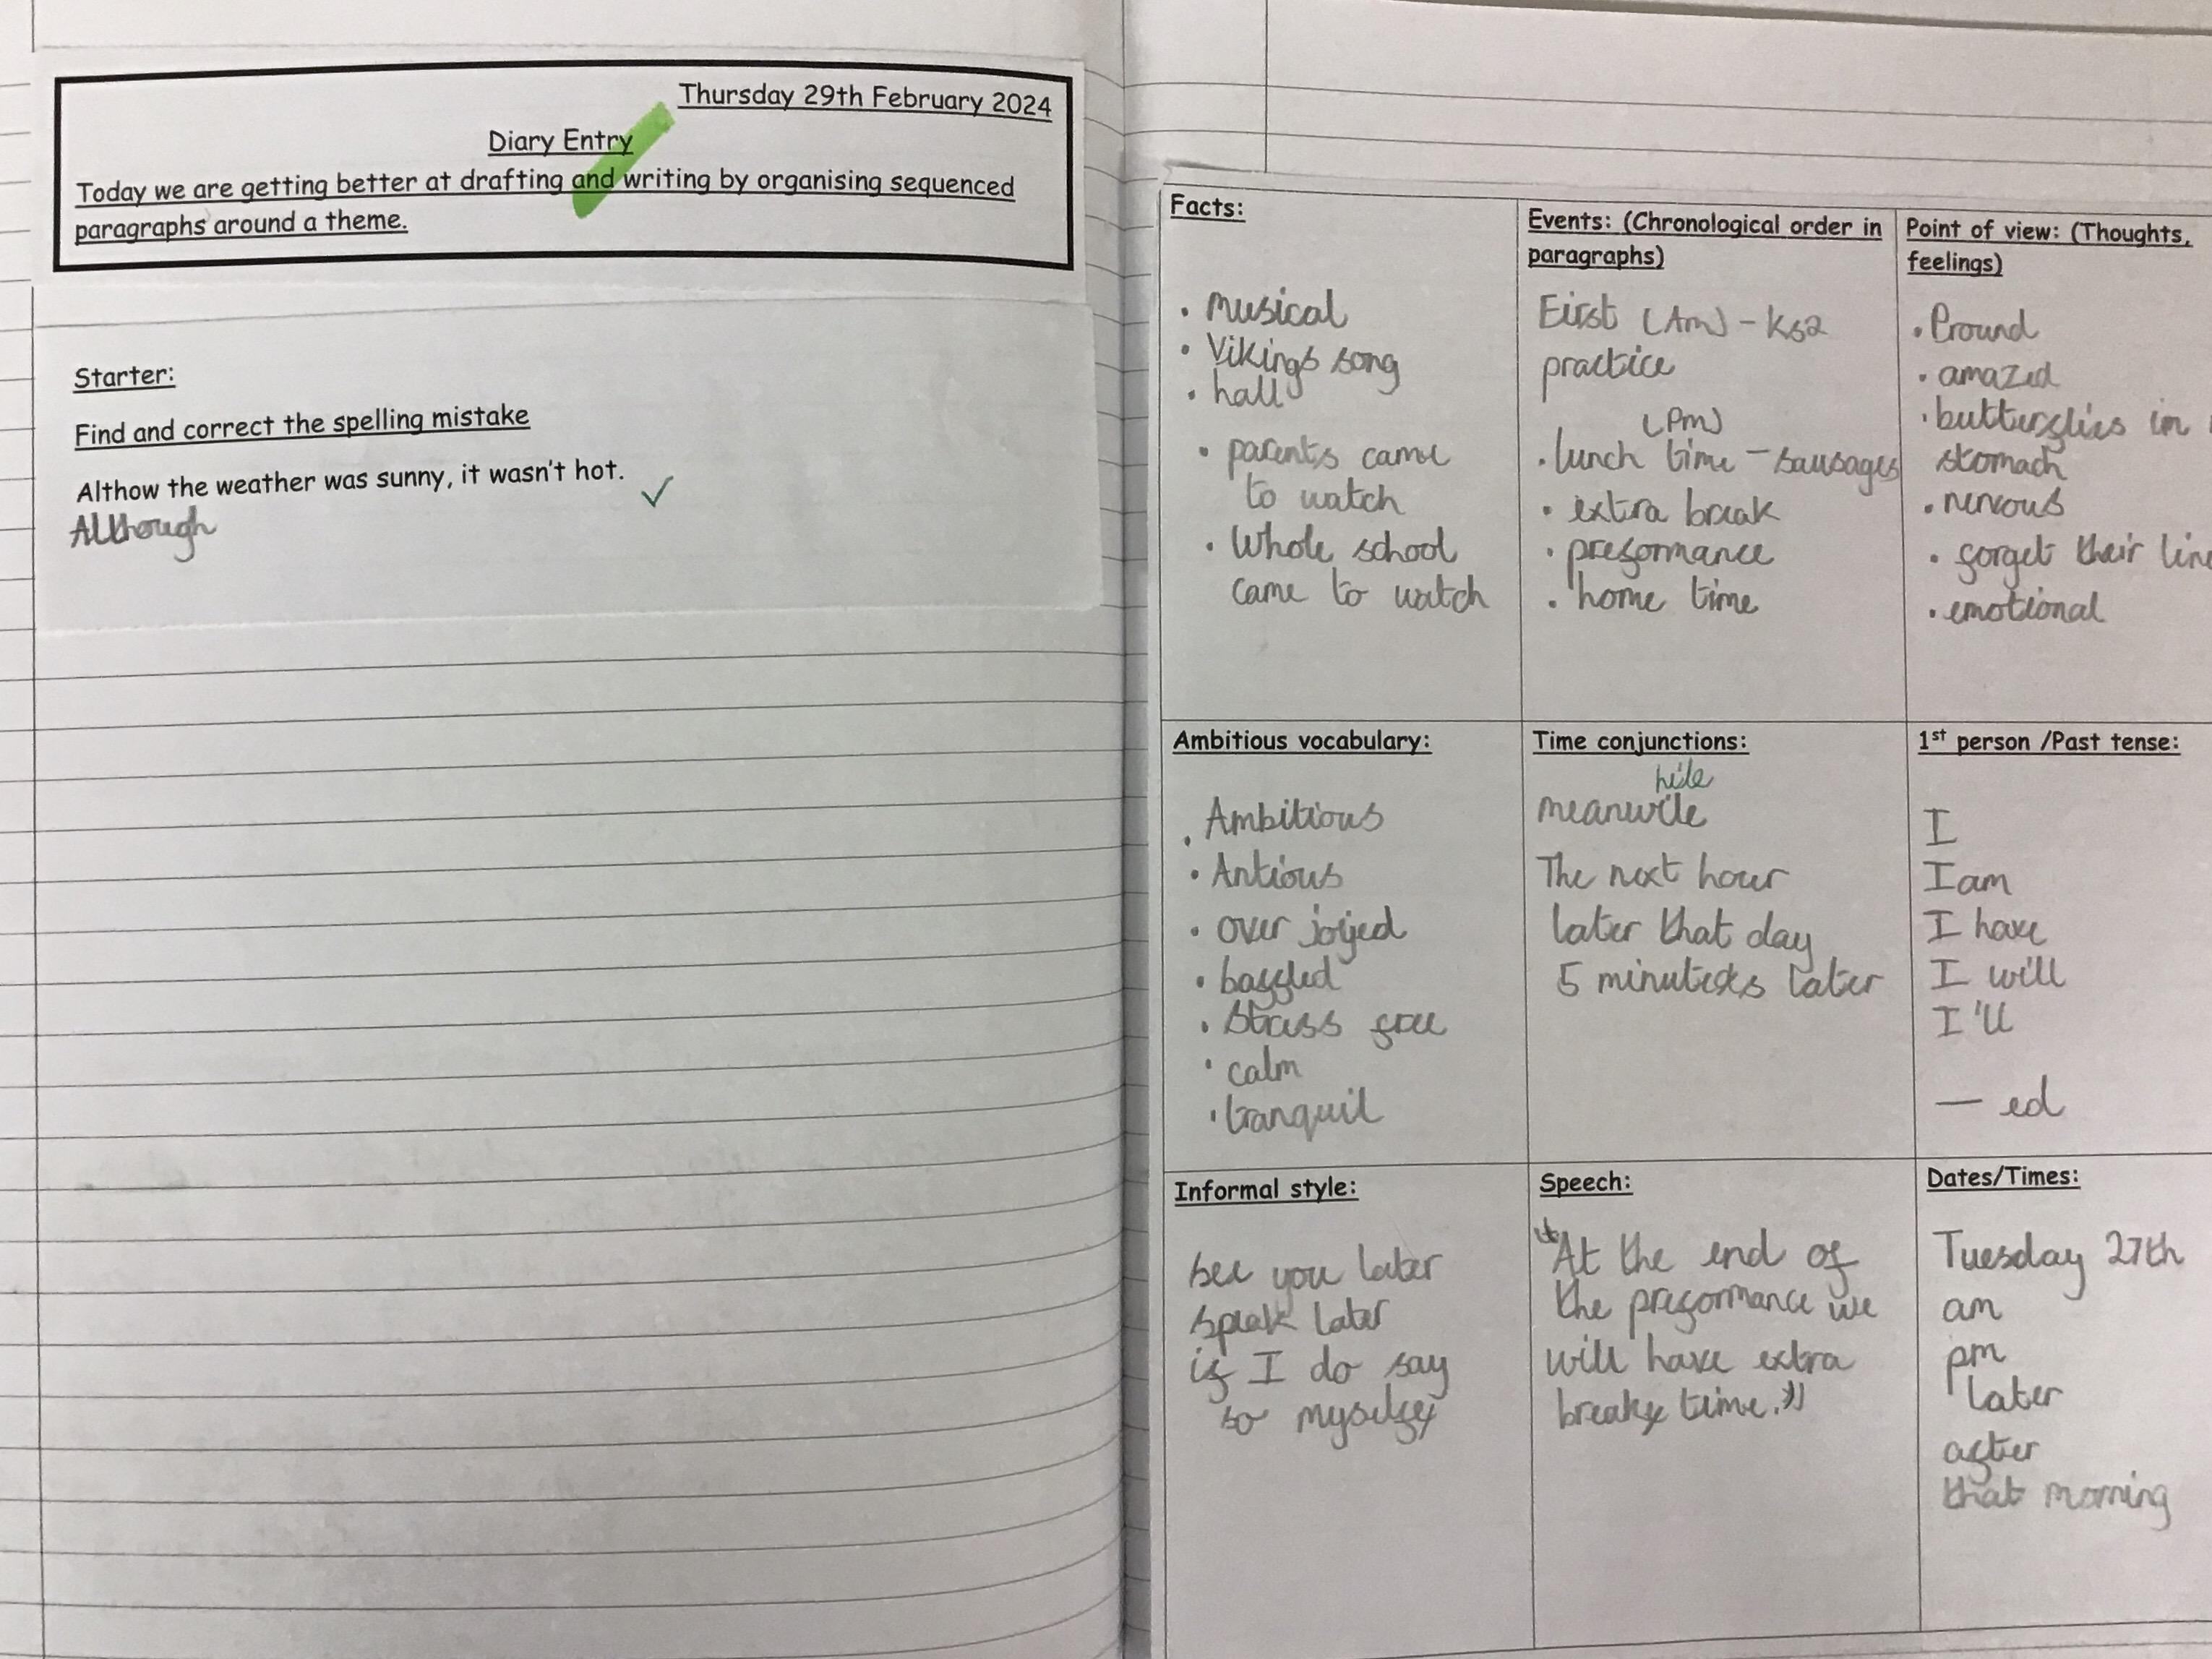 Thursday 29th February 2024
Diary Entry
Today we are getting better at drafting and writing by organising sequenced
paragraphs around a theme.
Starter:
Find and correct the spelling mistake
Althow the weather was sunny, it wasn't hot.
Although
Facts:
• Musical
• Vikings song
• hall
• parents came
to watch
• Whole school
came to watch
Events: (Chronological order in
paragraphs)
First (Am) - Ks2
practice
(Pm)
• lunch time - sausages
• extra break
• preformance
• home time
Point of view: (Thoughts,
feelings)
• Pround
• amazed
• butterflies in
stomach
• nervous
• forget their
• emotional
Ambitious vocabulary:
• Ambitious
• Antious
• over joyed
• baffled
• Stress free
• calm
• tranquil
Time conjunctions:
hile
meanwile
The next hour
later that day
5 minutes later
1st person /Past tense:
I
I am
I have
I will
I'll
— ed
Informal style:
see you later
speak later
if I do say
so myself
Speech:
"At the end of
the preformance we
will have extra
break time."
Dates/Times:
Tuesday 27th
am
pm
later
after
that morning